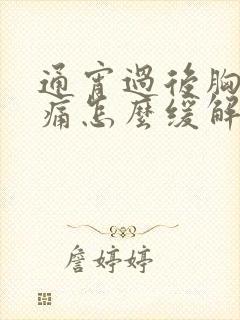 通宵過後胸
痛怎麼緩解
詹婷婷